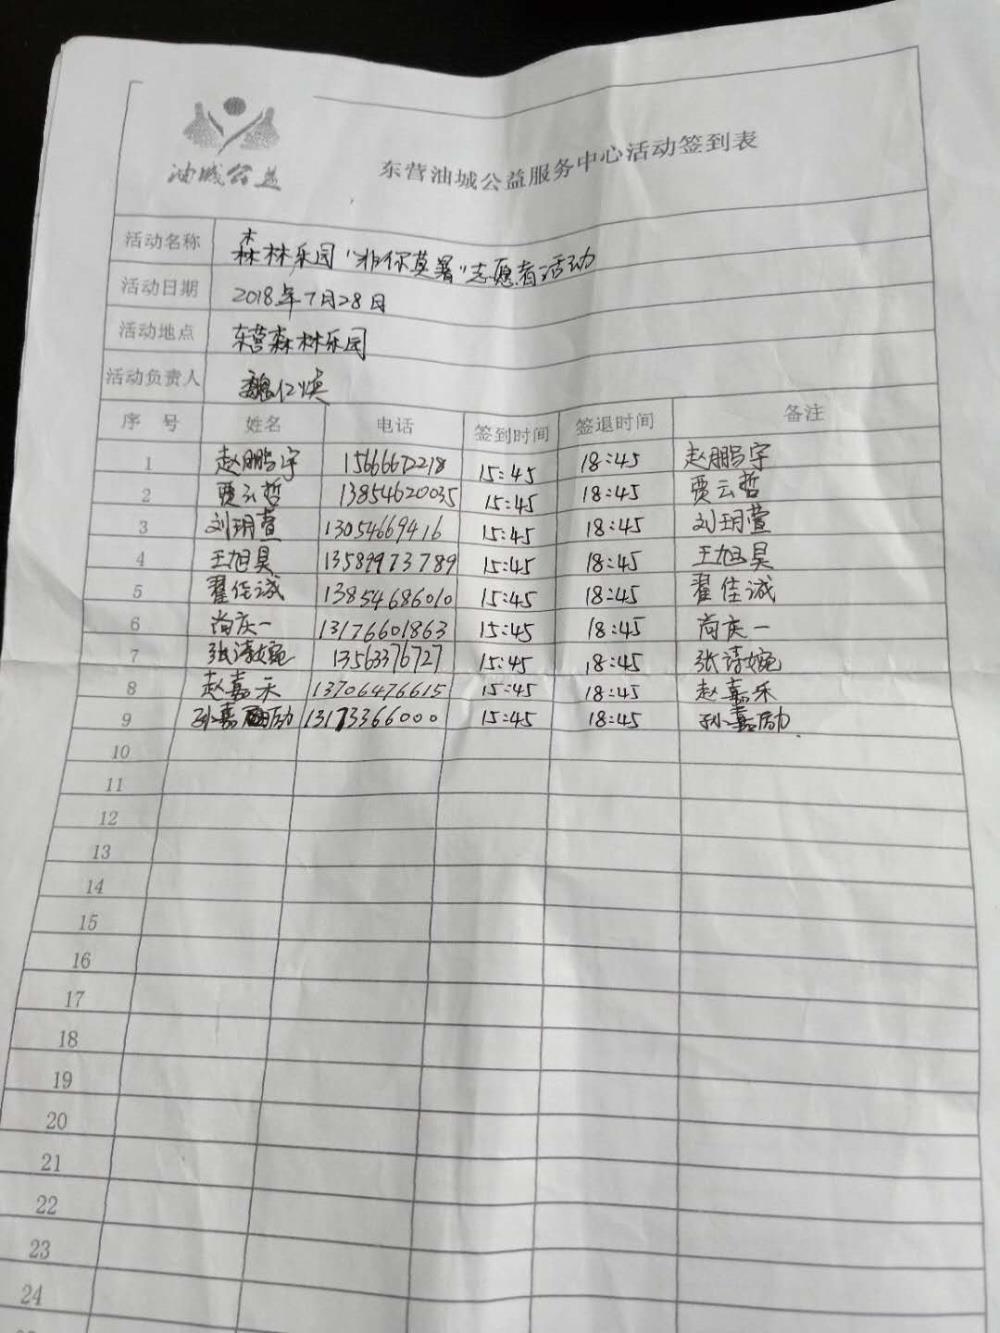 油城公益
东营油城公益服务中心活动签到表
活动名称 森林乐园"非你莫署"志愿者活动
活动日期 2018年7月28日
活动地点 东营森林乐园
活动负责人 魏仁焕
序 号 姓名 电话 签到时间 签退时间 备注
1 赵鹏宇 15666672218 15:45 18:45 赵鹏宇
2 贾云哲 13854620035 15:45 18:45 贾云哲
3 刘玥萱 13054669416 15:45 18:45 刘玥萱
4 王旭昊 13589973789 15:45 18:45 王旭昊
5 翟佳诚 13854686010 15:45 18:45 翟佳诚
6 尚庆一 13176601863 15:45 18:45 尚庆一
7 张诗婉 13563376727 15:45 18:45 张诗婉
8 赵嘉禾 13706476615 15:45 18:45 赵嘉禾
9 孙嘉励 13173366000 15:45 18:45 孙嘉励
10
11
12
13
14
15
16
17
18
19
20
21
22
23
24